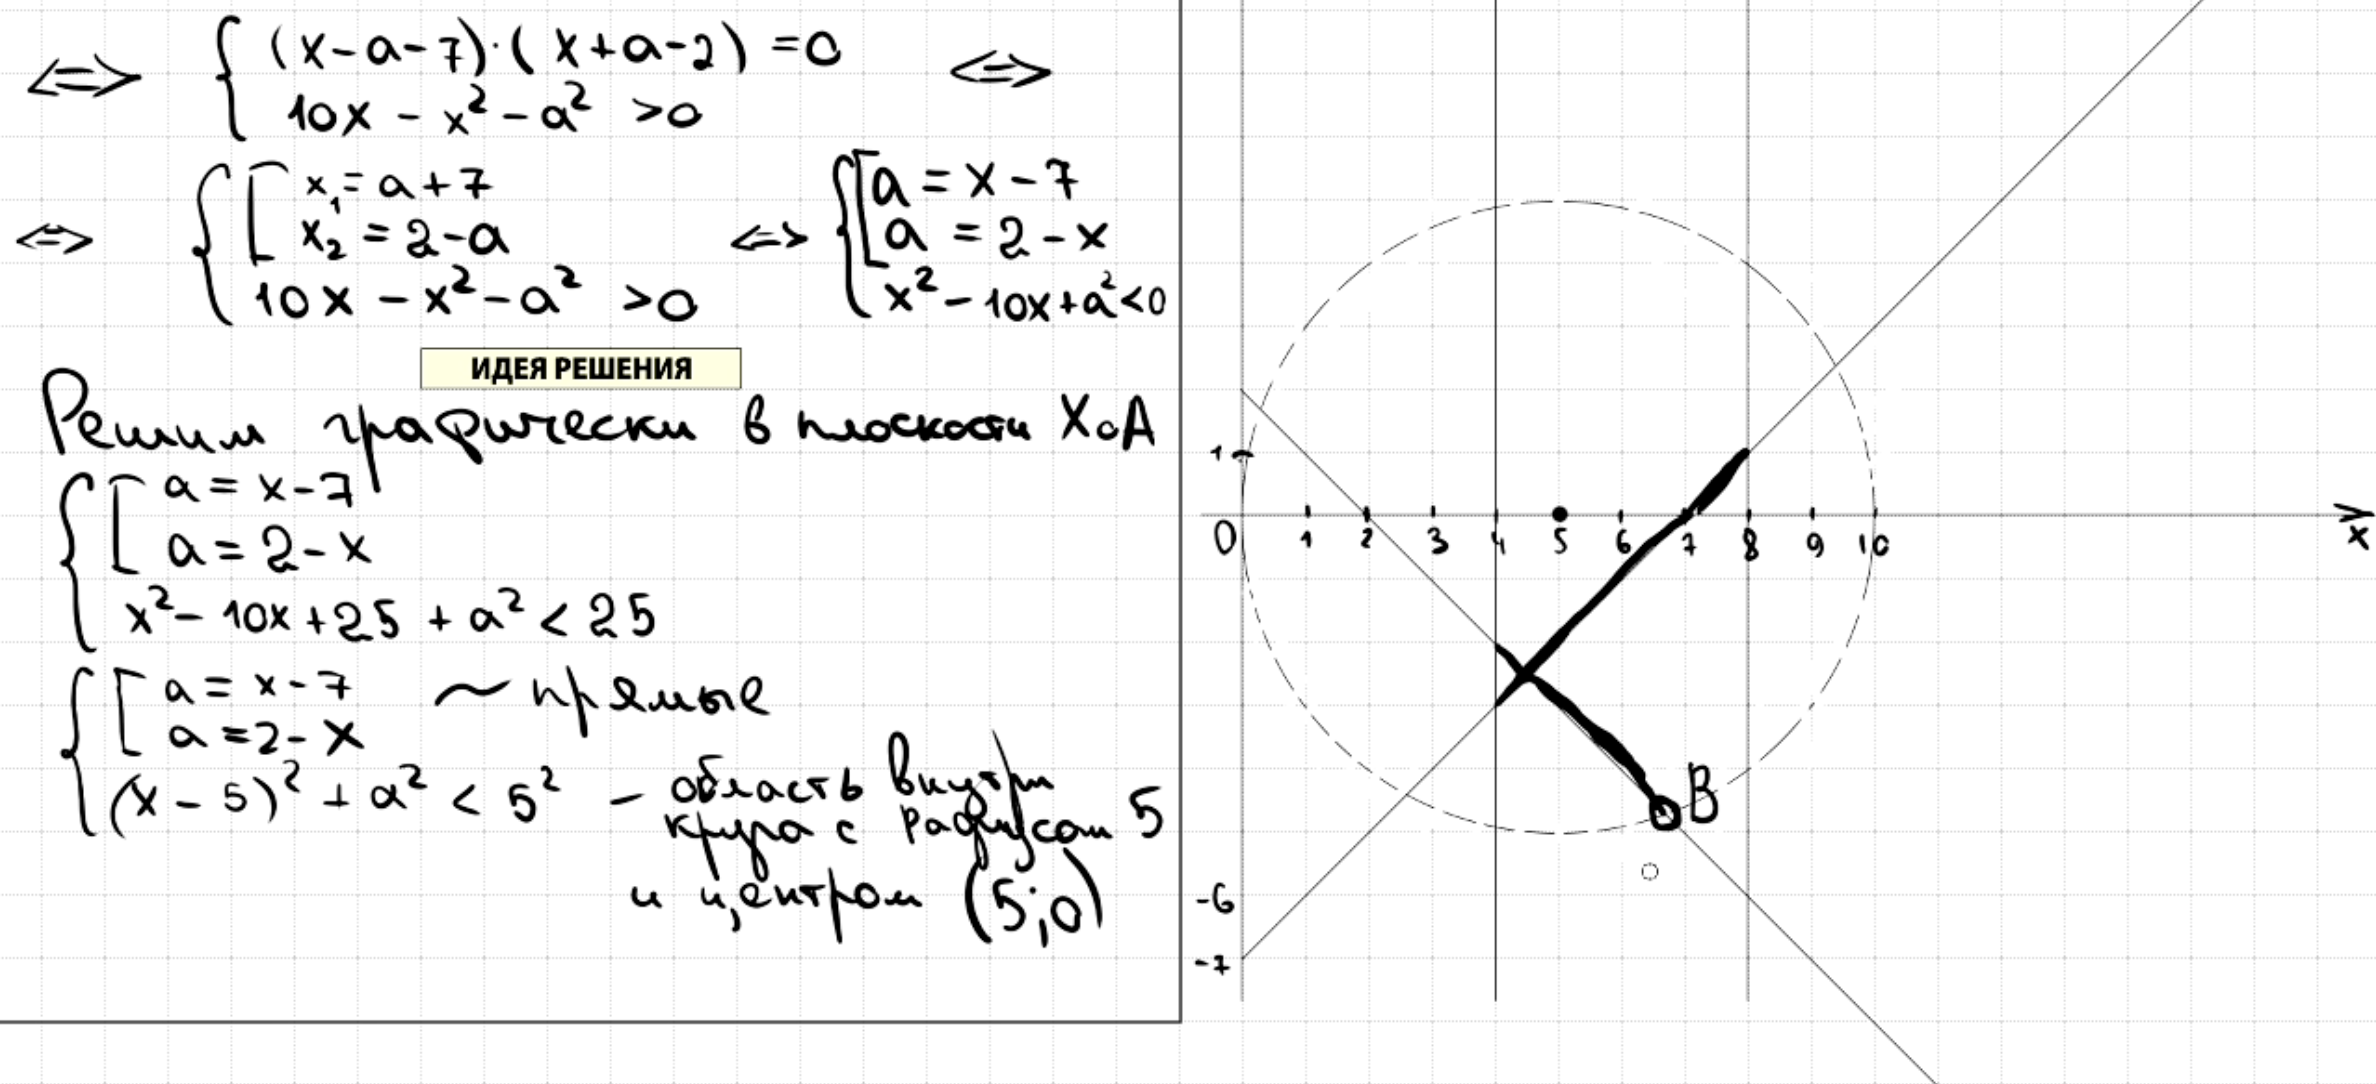 ⇔ { (x-a-7)·(x+a-2) =0 ⇔
10x - x² - a² >0
⇔ { [ x₁ = a+7 ⇔ { [ a = x-7
x₂ = 2-a a = 2-x
10x - x² - a² >0 x² - 10x + a² <0
ИДЕЯ РЕШЕНИЯ
Решим графически в плоскости XoA
{ [ a = x-7
a = 2-x
x² - 10x + 25 + a² < 25
{ [ a = x-7 ~ прямые
a = 2-x
(x-5)² + a² < 5² - область внутри
круга с радиусом 5
и центром (5;0)
1
0 1 2 3 4 5 6 7 8 9 10 x
B
-6
-7